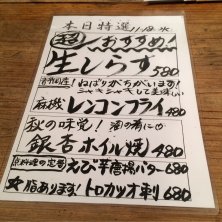 本日特選 11/18 水
超 おすすめ
生しらす 580
ねばりがちがいます!
シャキシャキして美味しい
麻機レンコンフライ 480
秋の味覚! 酒の肴に
銀杏ホイル焼 480
えび芋唐揚バター 680
脂あります! トロカツオ刺 680